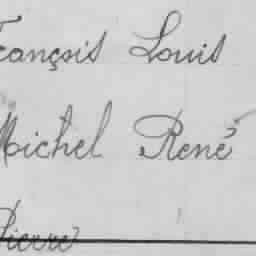 François Louis
Michel René
Pierre